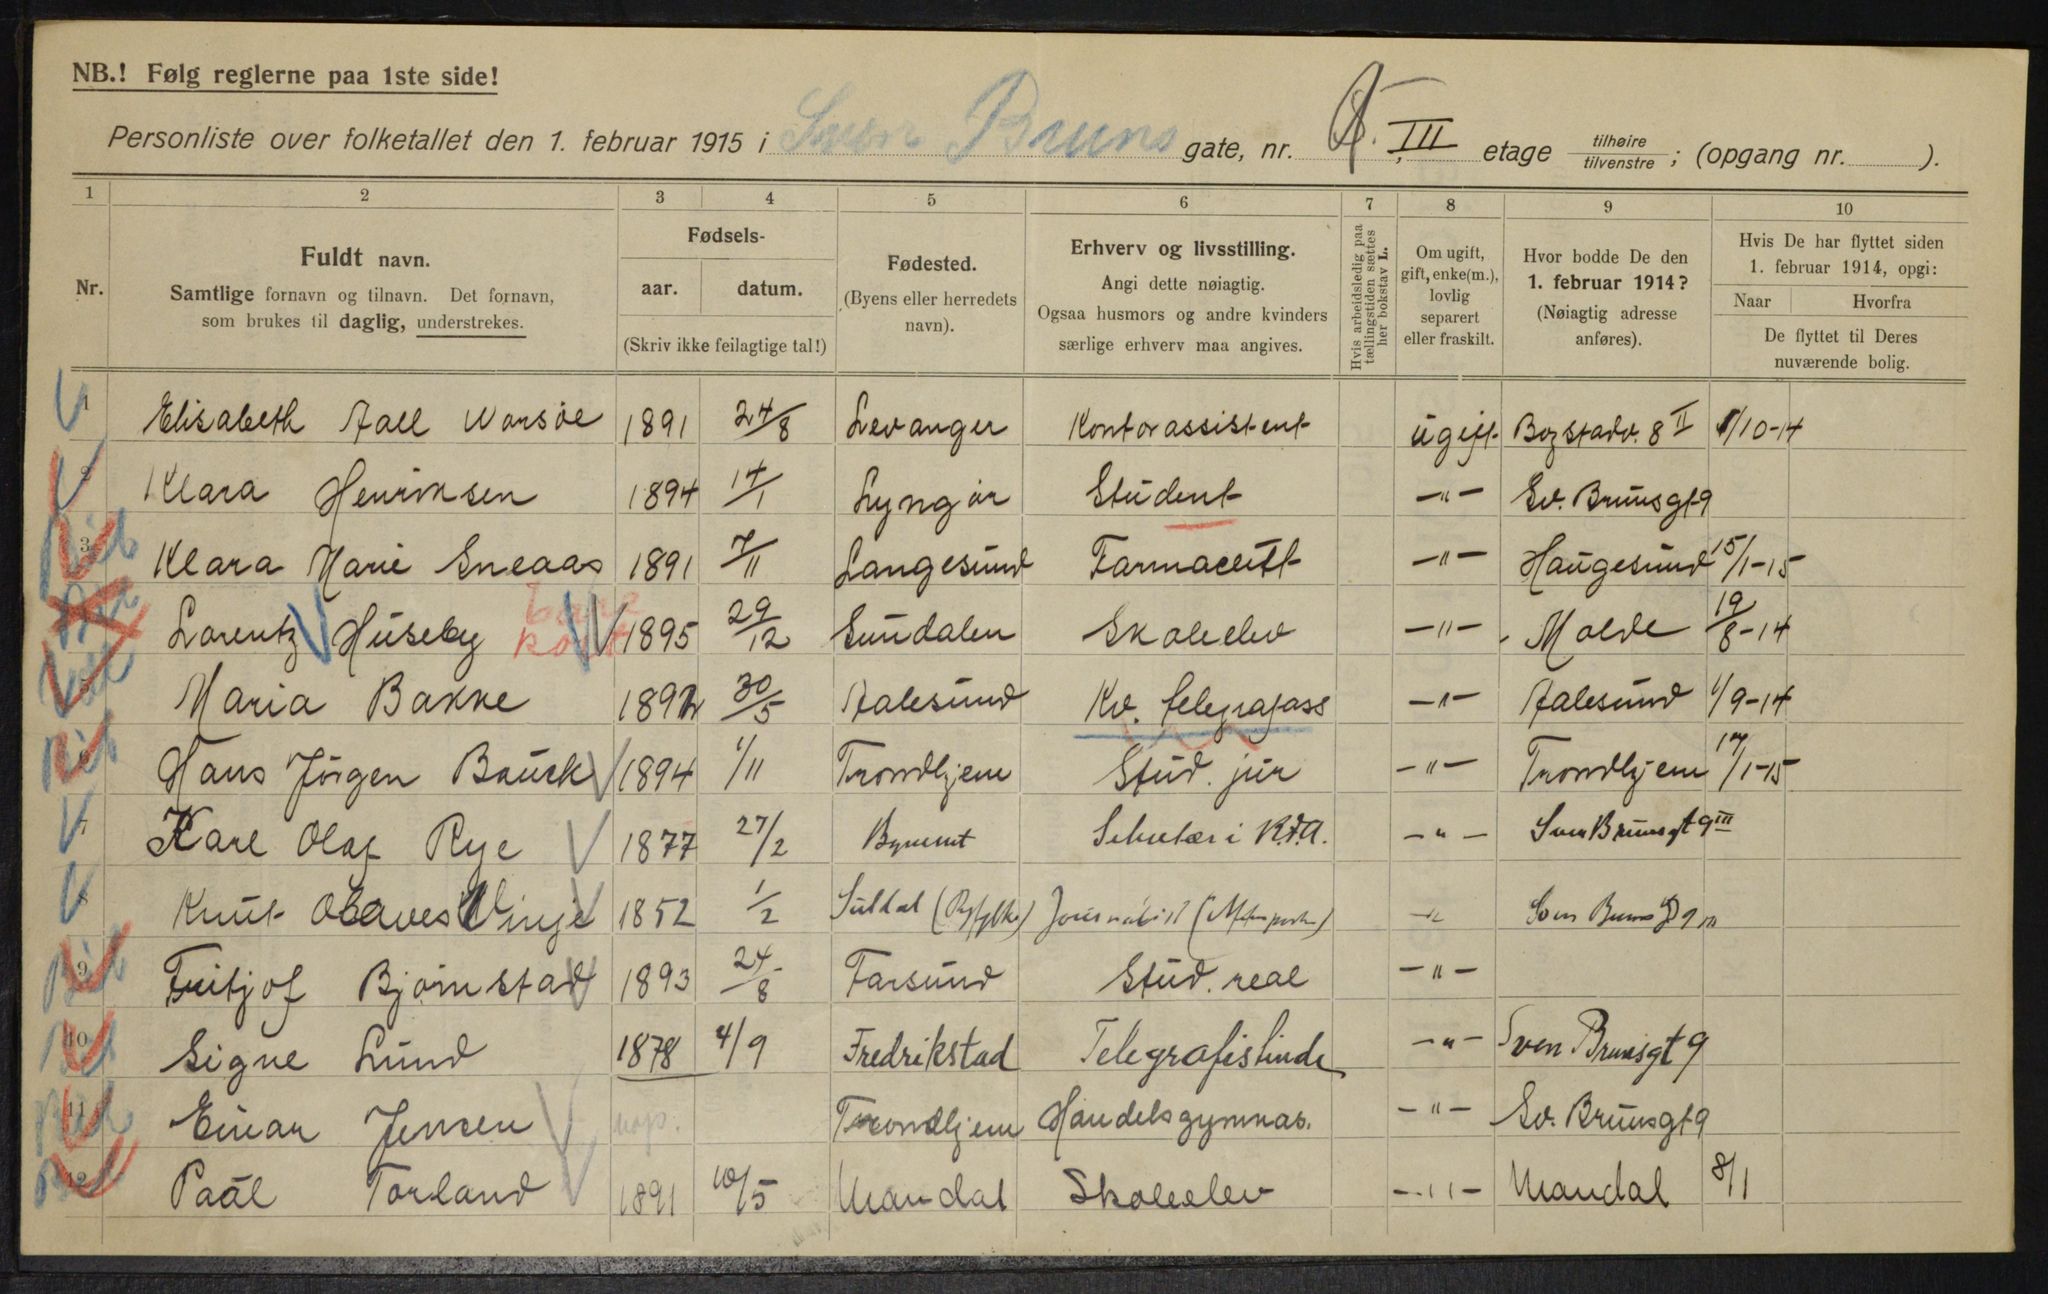 NB.! Følg reglerne paa 1ste side!
Personliste over folketallet den 1. februar 1915 i Sven Bruns gate, nr. 9. III etage tilhøire / tilvenstre ; (opgang nr. ).
1 2 3 4 5 6 7 8 9 10
Nr. Fuldt navn. Samtlige fornavn og tilnavn. Det fornavn, som brukes til daglig, understrekes.
Fødsels- aar. datum. (Skriv ikke feilagtige tal!)
Fødested. (Byens eller herredets navn).
Erhverv og livsstilling. Angi dette nøiagtig. Ogsaa husmors og andre kvinders særlige erhverv maa angives.
Hvis arbeidsledig paa tællingstiden sættes her bokstav L.
Om ugift, gift, enke(m.), lovlig separert eller fraskilt.
Hvor bodde De den 1. februar 1914? (Nøiagtig adresse anføres).
Hvis De har flyttet siden 1. februar 1914, opgi: Naar Hvorfra De flyttet til Deres nuværende bolig.
1 Elisabeth Aall Worsøe 1891 24/8 Levanger Kontorassistent ugift Bogstadv. 8 II 1/10-14
2 Klara Henriksen 1894 14/1 Lyngør Student -"- Sv. Brunsgt 9
3 Klara Marie Sneaas 1891 7/11 Langesund Farmaceut -"- Haugesund 15/1-15
Lorentz Huseby 1895 29/12 Sundalen Skoleelev -"- Molde 19/8-14
5 Maria Bakke 1892 30/5 Aalesund Kv. telegrafass -"- Aalesund 1/9-14
6 Hans Jörgen Bauck 1894 1/11 Trondhjem Stud. jur -"- Trondhjem 17/1-15
7 Karl Olaf Rye 1877 27/2 Bynesset Sekretær i K.F.A. -"- Sven Brunsgt 9 III
8 Knut Olaves Vinje 1852 1/2 Suldal (Ryfylke) Journalist (" -"- Sven Bruns G 9 III
9 Fritjof Bjørnstad 1893 24/8 Farsund Stud. real -"-
10 Signe Lund 1878 4/9 Fredrikstad Telegrafistinde -"- Sven Brunsgt 9
11 Einar Jensen Trondhjem Handelsgymnas. -"- Sv. Brunsgt 9
12 Paal Torland 1891 10/5 Mandal Skoleelev -"- Mandal 8/1